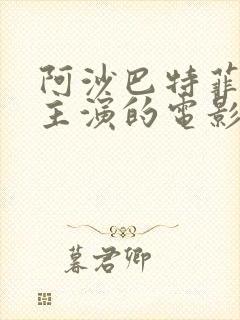 阿沙巴特菲
主演的电影
暮君卿